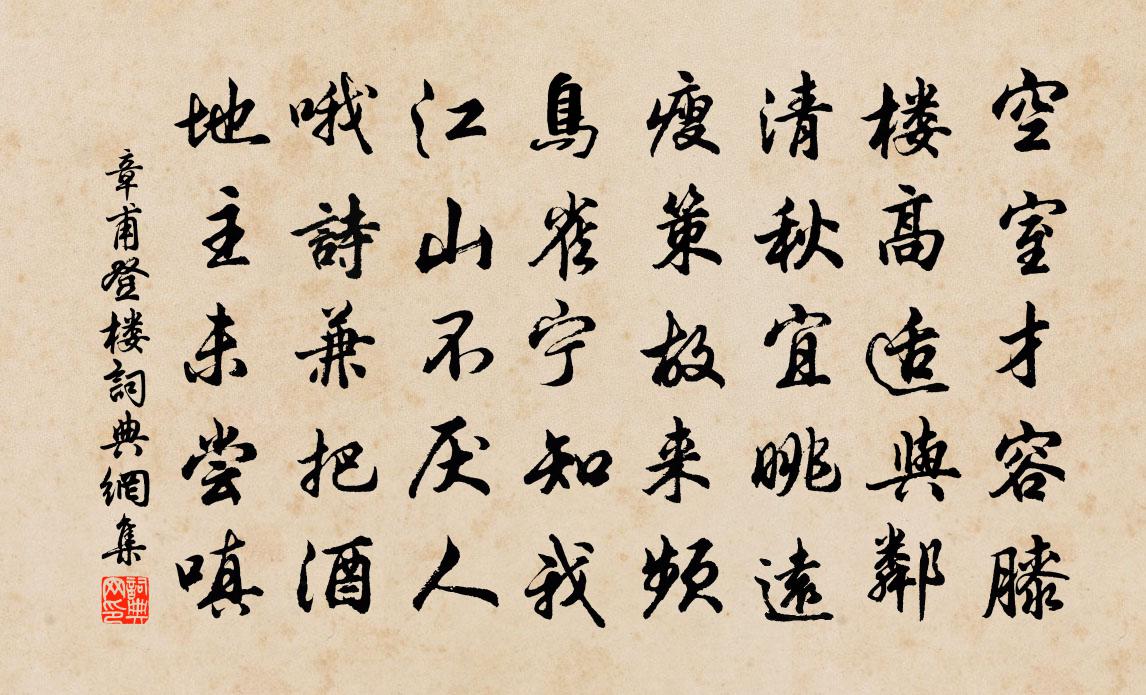 空室才容膝
楼高适與鄰
清秋宜眺遠
瘦策故来频
鳥雀宁知我
江山不厌人
哦詩兼把酒
地主未尝嗔
章甫登楼詞典網集
詞典网印